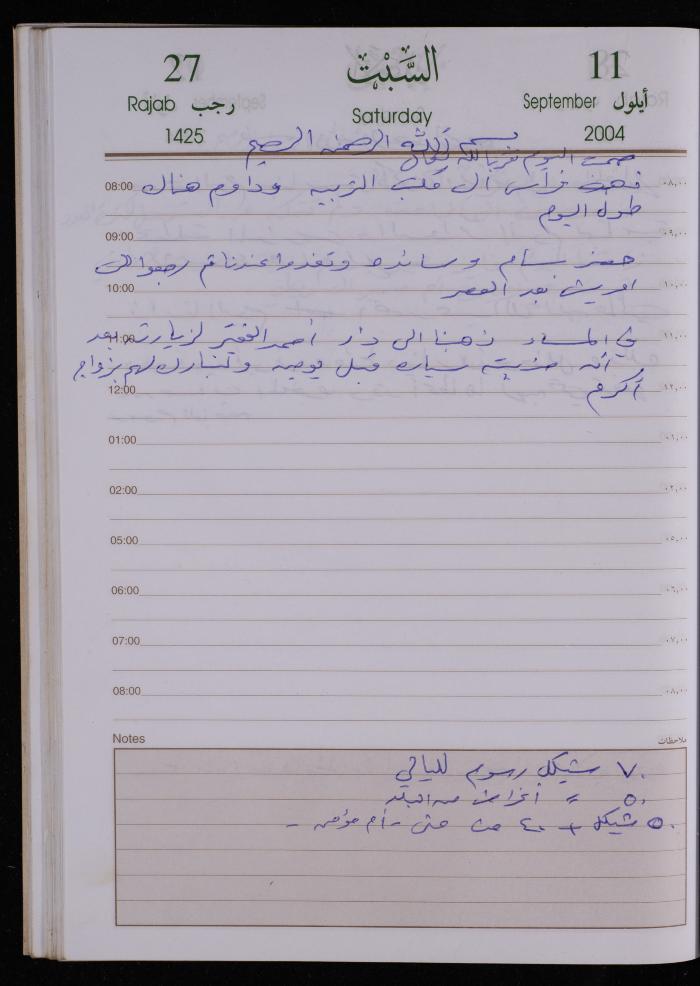 27 السَّبْت 11
Rajab رجب Saturday September أيلول
1425 2004
بسم الله الرحمن الرحيم
صمت اليوم
08:00 فراس الى مكتب التربيه وداوم هناك ٠٨,٠٠
طول اليوم
09:00 ٠٩,٠٠
حضر بسام وسائده وتغدوا عندنا ثم رجعوا الى
10:00 بعد العصر ١٠,٠٠
11:00 في المساء ذهبنا الى دار أحمد لزيارته بعد ١١,٠٠
أنه ضربته سياره قبل يومين ولنبارك لهم بزواج
12:00 أكرم ١٢,٠٠
01:00 ٠١,٠٠
02:00 ٠٢,٠٠
05:00 ٠٥,٠٠
06:00 ٠٦,٠٠
07:00 ٠٧,٠٠
08:00 ٠٨,٠٠
Notes ملاحظات
٧٠ شيكل رسوم
٥٠ = أغراض من البلد
٥٠ شيكل + ٤٠ من أم مؤمن -